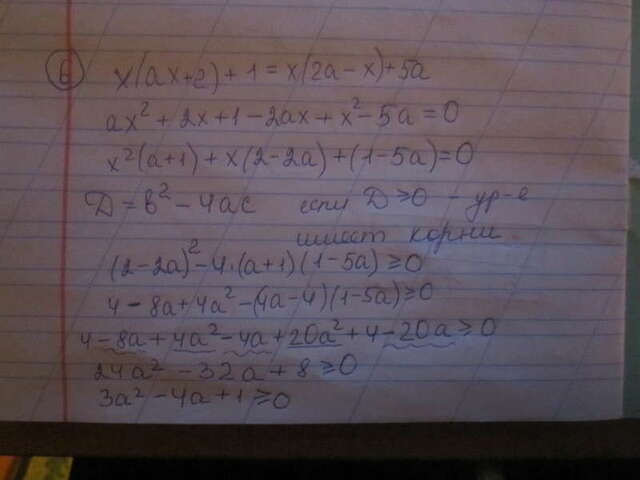 6 x(ax+2)+1=x(2a-x)+5a
ax²+2x+1-2ax+x²-5a=0
x²(a+1)+x(2-2a)+(1-5a)=0
D=b²-4ac если D≥0 - ур-е
имеет корни
(2-2a)²-4·(a+1)(1-5a)≥0
4-8a+4a²-(4a-4)(1-5a)≥0
4-8a+4a²-4a+20a²+4-20a≥0
24a²-32a+8≥0
3a²-4a+1≥0